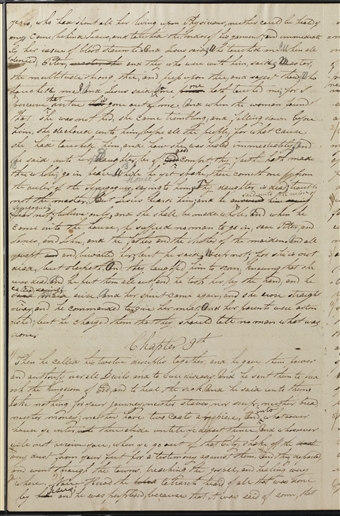 years, who had spent all her living upon Physicians, neither could be healed of
any came behind him, and touched the border of his garment; and immediately
her issue of blood staunched. And Jesus said, Who touched me? When all
denied, Peter, and they who were with him, said, Master,
the multitude throng thee, and press upon thee, and sayest thou, Who
touched me? And Jesus said, Some one hath touched me; for I
perceive that is gone out of me. And when the woman found
that she was not hid, she came trembling, and falling down before
him, she declared unto him before all the people, for what cause
she had touched him, and how she was healed immediately. And
he said unto her, Daughter, be of good comfort; thy faith hath made
thee whole; go in peace. While he yet spake, there cometh one from
the ruler of the synagogue, saying to him, Thy daughter is dead; trouble
not the master. But Jesus heard him, and he
Fear not: believe only, and she shall be made whole. And when he
came into the house, he suffered no man to go in, save Peter, and
James, and John, and the father and the mother of the maiden. And all
wept and bewailed her; but he said, Weep not; for she is not
dead, but sleepeth. And they laughed him to scorn, knowing that she
was dead. And he put them all out, and he took her by the hand, and he
called, saying, Maid arise. And her spirit came again, and she arose straight
way; and he commanded to give her meat. And her parents were aston
ished; but he charged them that they should tell no man what was
done.
Chapter 9th
Then he called his twelve disciples together, and he gave them power
and authority over all Devils and to cure diseases. And he sent them to preach
the kingdom of God, and to heal the sick. And he said unto them,
take nothing for your journey, neither staves, nor scrip, neither bread
neither money; neither have two coats apiece; And into whatsoever
house ye enter, there abide until ye depart thence; And whosoever
will not receive you, when ye go out of that city, shake off the
dust from your feet for a testimony against them. And they departed
and went through the towns, preaching the gospel, and healing every
where. Now Herod the tetrarch heard of all that was done
by Jesus; and he was perplexed, because that it was said of some, that